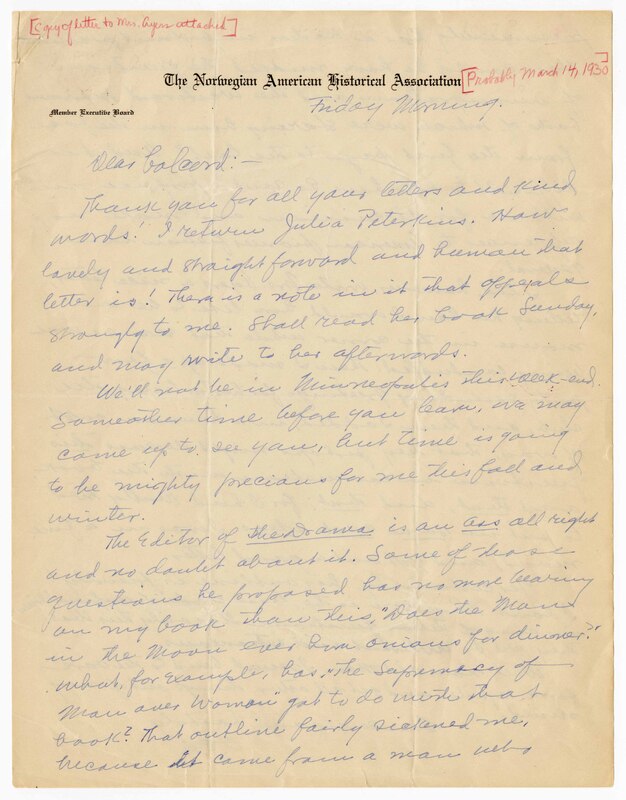 [Copy of letter to Mrs. Ayers attached]
The Norwegian American Historical Association
[Probably March 14, 1930]
Member Executive Board
Friday Morning.
Dear Colcord:—
Thank you for all your letters and kind
words! I return Julia Peterkins. How
lovely and straightforward and human that
letter is! There is a note in it that appeals
strongly to me. Shall read her book Sunday,
and may write to her afterwards.
We'll not be in Minneapolis this week-end.
Someother time before you leave, we may
come up to see you, but time is going
to be mighty precious for me this fall and
winter.
The Editor of the Drama is an ass all right
and no doubt about it. Some of those
questions he proposed has no more bearing
on my book than this, "Does the Man
in the Moon ever have onions for dinner?"
What, for Example, has "The Supremacy of
Man over Woman" got to do with that
book? That outline fairly sickened me,
because it came from a man who